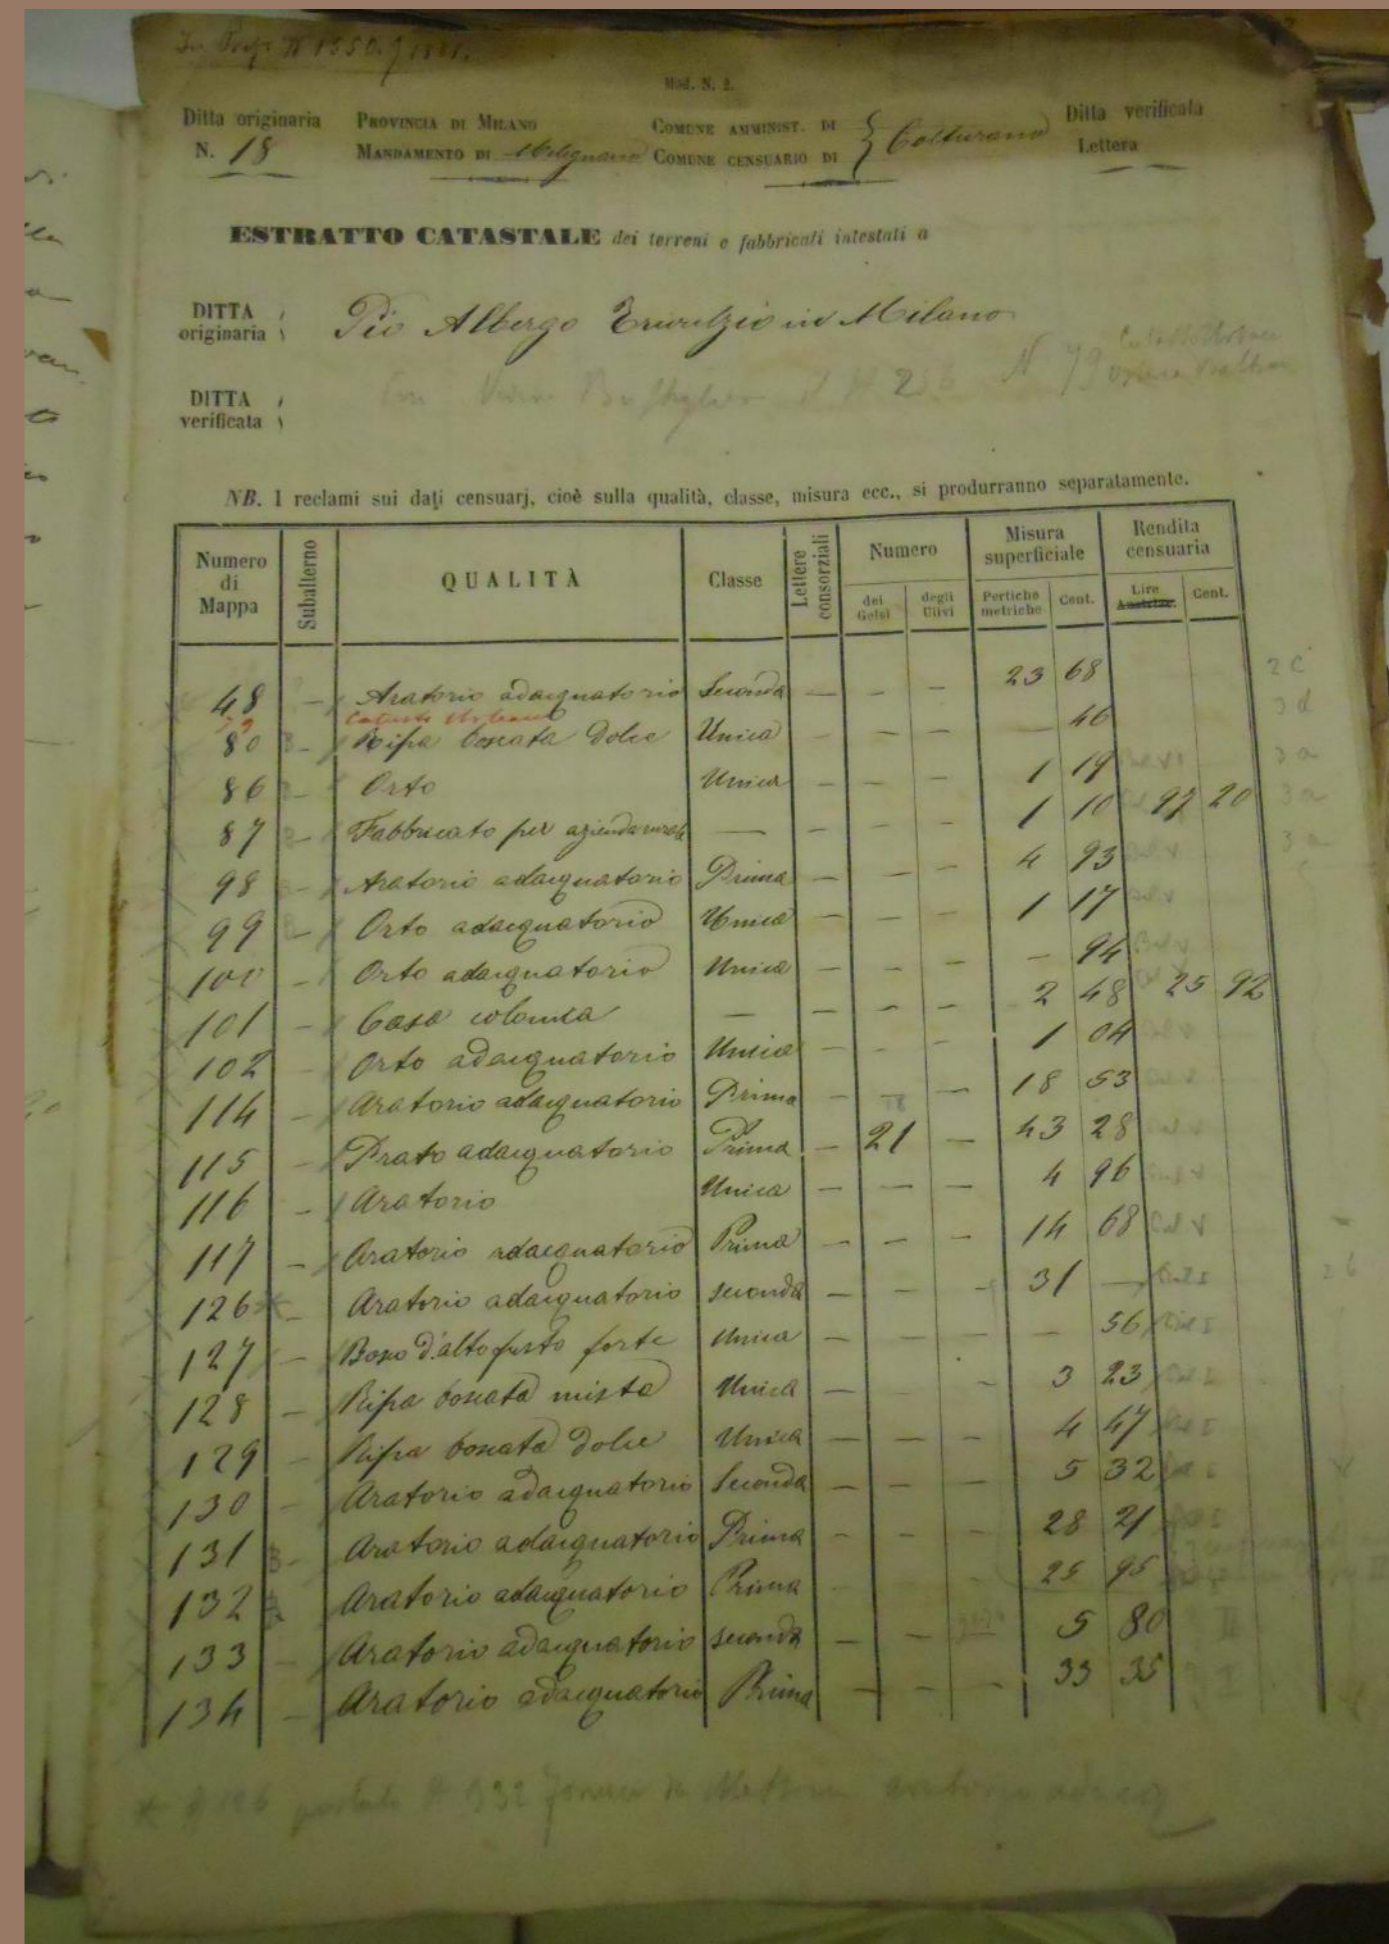 N 1550
Mod. N. 2.
Ditta originaria
N. 18
PROVINCIA DI MILANO
MANDAMENTO DI Melegnano
COMUNE AMMINIST. DI
COMUNE CENSUARIO DI
} Colturano
Ditta verificata
Lettera
ESTRATTO CATASTALE dei terreni e fabbricati intestati a
DITTA originaria
Pio Albergo Trivulzio in Milano
N 79
DITTA verificata
NB. I reclami sui dati censuarj, cioè sulla qualità, classe, misura ecc., si produrranno separatamente.
Numero di Mappa | Subalterno | QUALITÀ | Classe | Lettere consorziali | Numero | Misura superficiale | Rendita censuaria
dei Gelsi | degli Ulivi | Pertiche metriche | Cent. | Lire Austriac. | Cent.
48 – Aratorio adacquatorio Seconda – – – 23 68 2 c
79 Catasto Urbano
80 – Ripa boscata dolce Unica – – – – 46 3 d
86 – Orto Unica – – – 1 19 3 a
87 – Fabbricato per azienda rurale – – – – 1 10 97 20 3 a
98 – Aratorio adacquatorio Prima – – – 4 93 3 a
99 – Orto adacquatorio Unica – – – 1 17
100 – Orto adacquatorio Unica – – – – 94
101 – Casa colonica – – – – 2 48 25 92
102 – Orto adacquatorio Unica – – – 1 04
114 – Aratorio adacquatorio Prima – 18 – 18 53
115 – Prato adacquatorio Prima – 21 – 43 28
116 – Aratorio Unica – – – 4 96
117 – Aratorio adacquatorio Prima – – – 14 68
126 * – Aratorio adacquatorio seconda – – – 31 –
127 – Bosco d'alto fusto forte Unica – – – – 56
128 – Ripa boscata mista Unica – – 3 23
129 – Ripa boscata dolce Unica – – – 4 47
130 – Aratorio adacquatorio Seconda – – – 5 32
131 – Aratorio adacquatorio Prima – – – 28 21
132 Aratorio adacquatorio Prima 25 95
133 – Aratorio adacquatorio seconda – – 5 80
134 – Aratorio adacquatorio Prima – – – 33 35